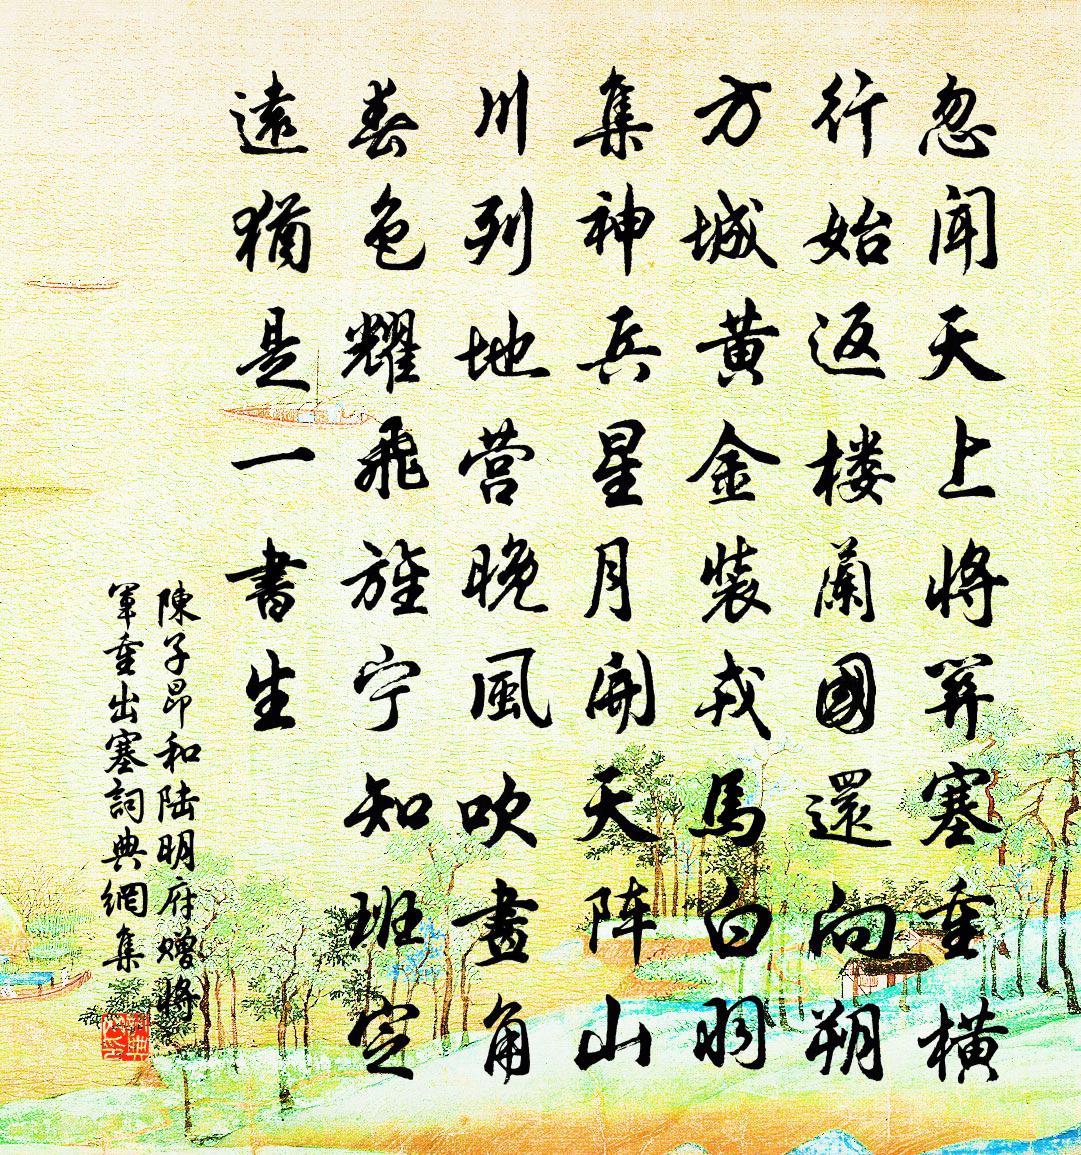 忽聞天上將关塞重横
行始返楼蘭國還向朔
方城黄金装戎馬白羽
集神兵星月開天阵山
川列地营晚風吹畫角
春色耀飛旌宁知班定
遠猶是一書生
陳子昂和陆明府赠将
軍重出塞詞典網集